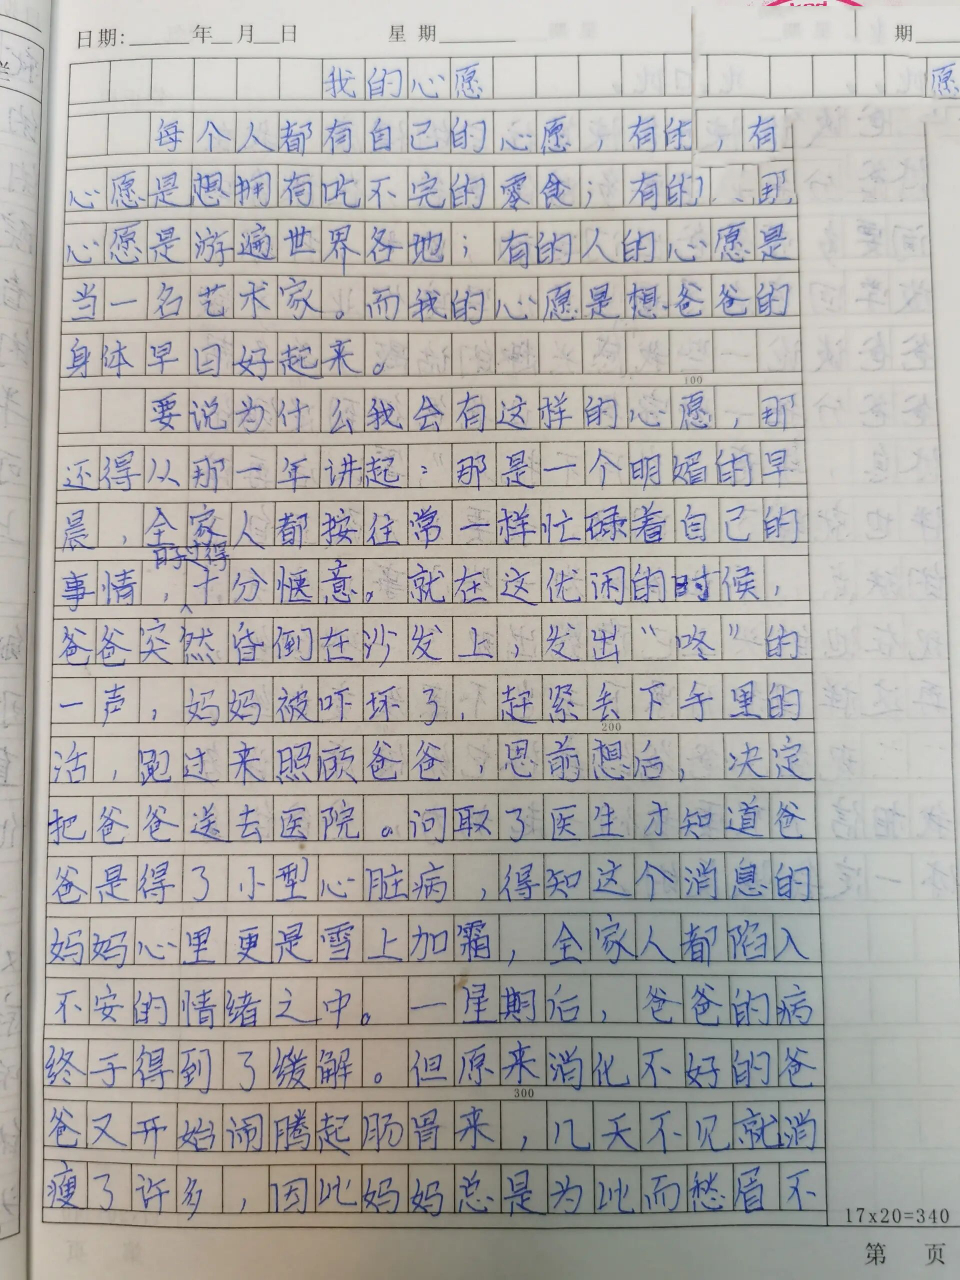 日期: 年 月 日 星期 期
我的心愿 愿
每个人都有自己的心愿，有的，有
心愿是想拥有吃不完的零食；有的 那
心愿是游遍世界各地；有的人的心愿是
当一名艺术家。而我的心愿是想爸爸的
身体早日好起来。
100
要说为什么我会有这样的心愿，那
还得从那一年讲起：那是一个明媚的早
晨，全家人都按往常一样忙碌着自己的
日子过得
事情，十分惬意。就在这优闲的时候，
爸爸突然昏倒在沙发上，发出“咚”的
一声，妈妈被吓坏了，赶紧丢下手里的
200
活，跑过来照顾爸爸，思前想后，决定
把爸爸送去医院。问取了医生才知道爸
爸是得了小型心脏病，得知这个消息的
妈妈心里更是雪上加霜，全家人都陷入
不安的情绪之中。一星期后，爸爸的病
终于得到了缓解。但原来消化不好的爸
300
爸又开始闹腾起肠胃来，几天不见就消
瘦了许多，因此妈妈总是为此而愁眉不
17x20=340
第 页